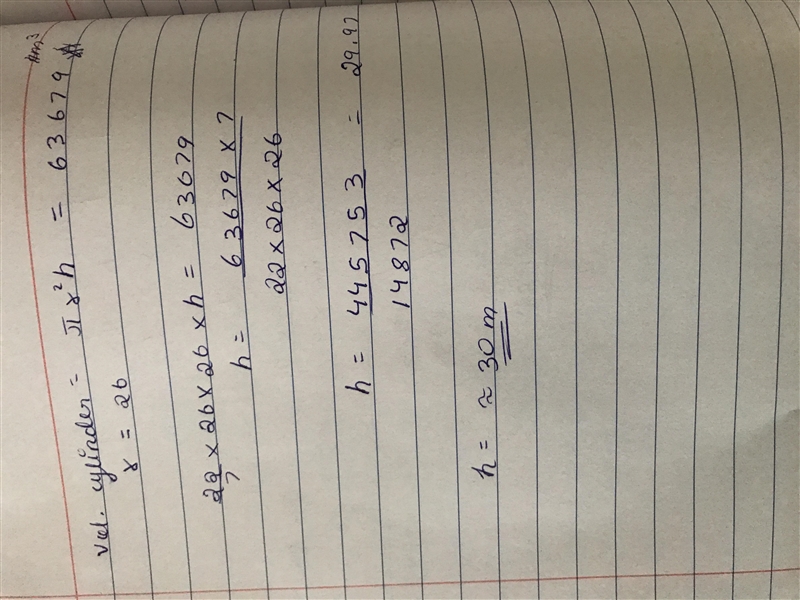 vol. cylinder = πr²h = 63679 m³
r = 26
22/7 × 26 × 26 × h = 63679
h = 63679 × 7
22 × 26 × 26
h = 445753 = 29.97
14872
h = ≈ 30 m